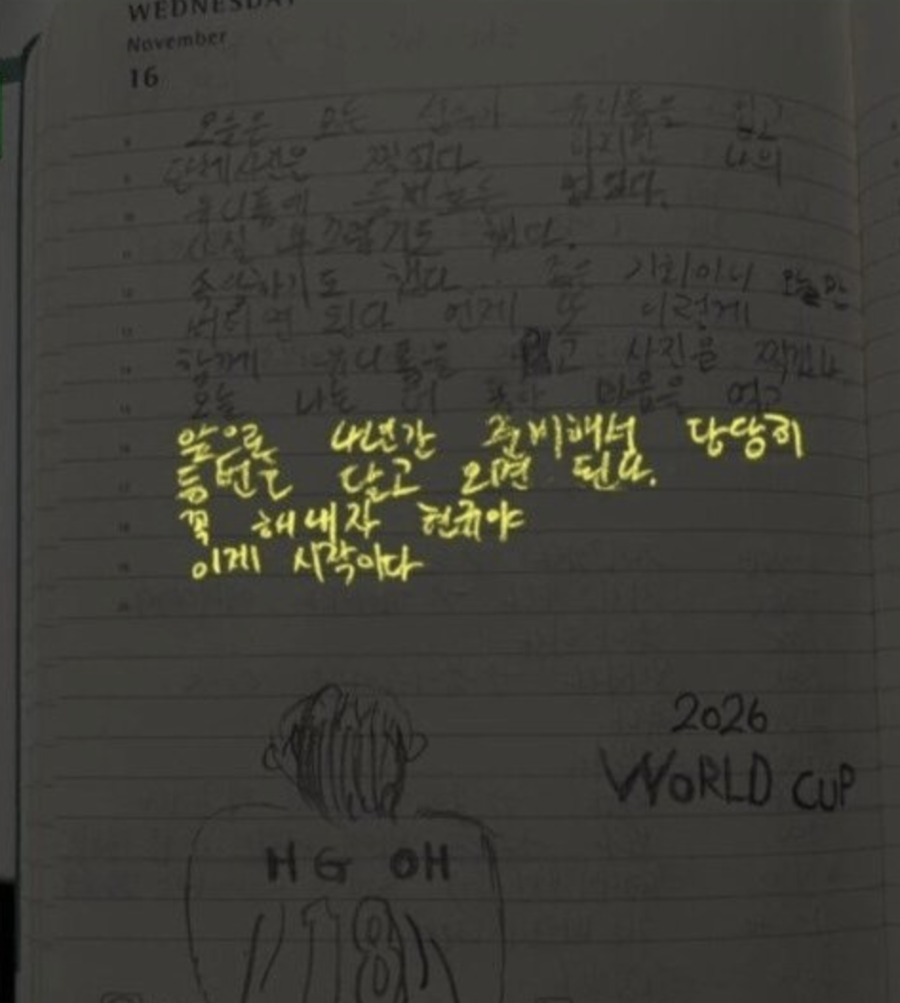 WEDNESDAY
November
16
오늘은 모든 선수가 유니폼을 입고
단체사진을 찍었다. 하지만 나의
유니폼에 등번호는 없었다.
사실 부끄럽기도 했다.
속상하기도 했다... 좋은 기회이니 오늘만
버티면 된다 언제 또 이렇게
함께 유니폼을 입고 사진을 찍겠나
오늘 나는 더 마음을 먹고
앞으로 4년간 준비해서 당당히
등번호 달고 오면 된다.
꼭 해내자 현규야
이게 시작이다
2026
WORLD CUP
H G OH
18